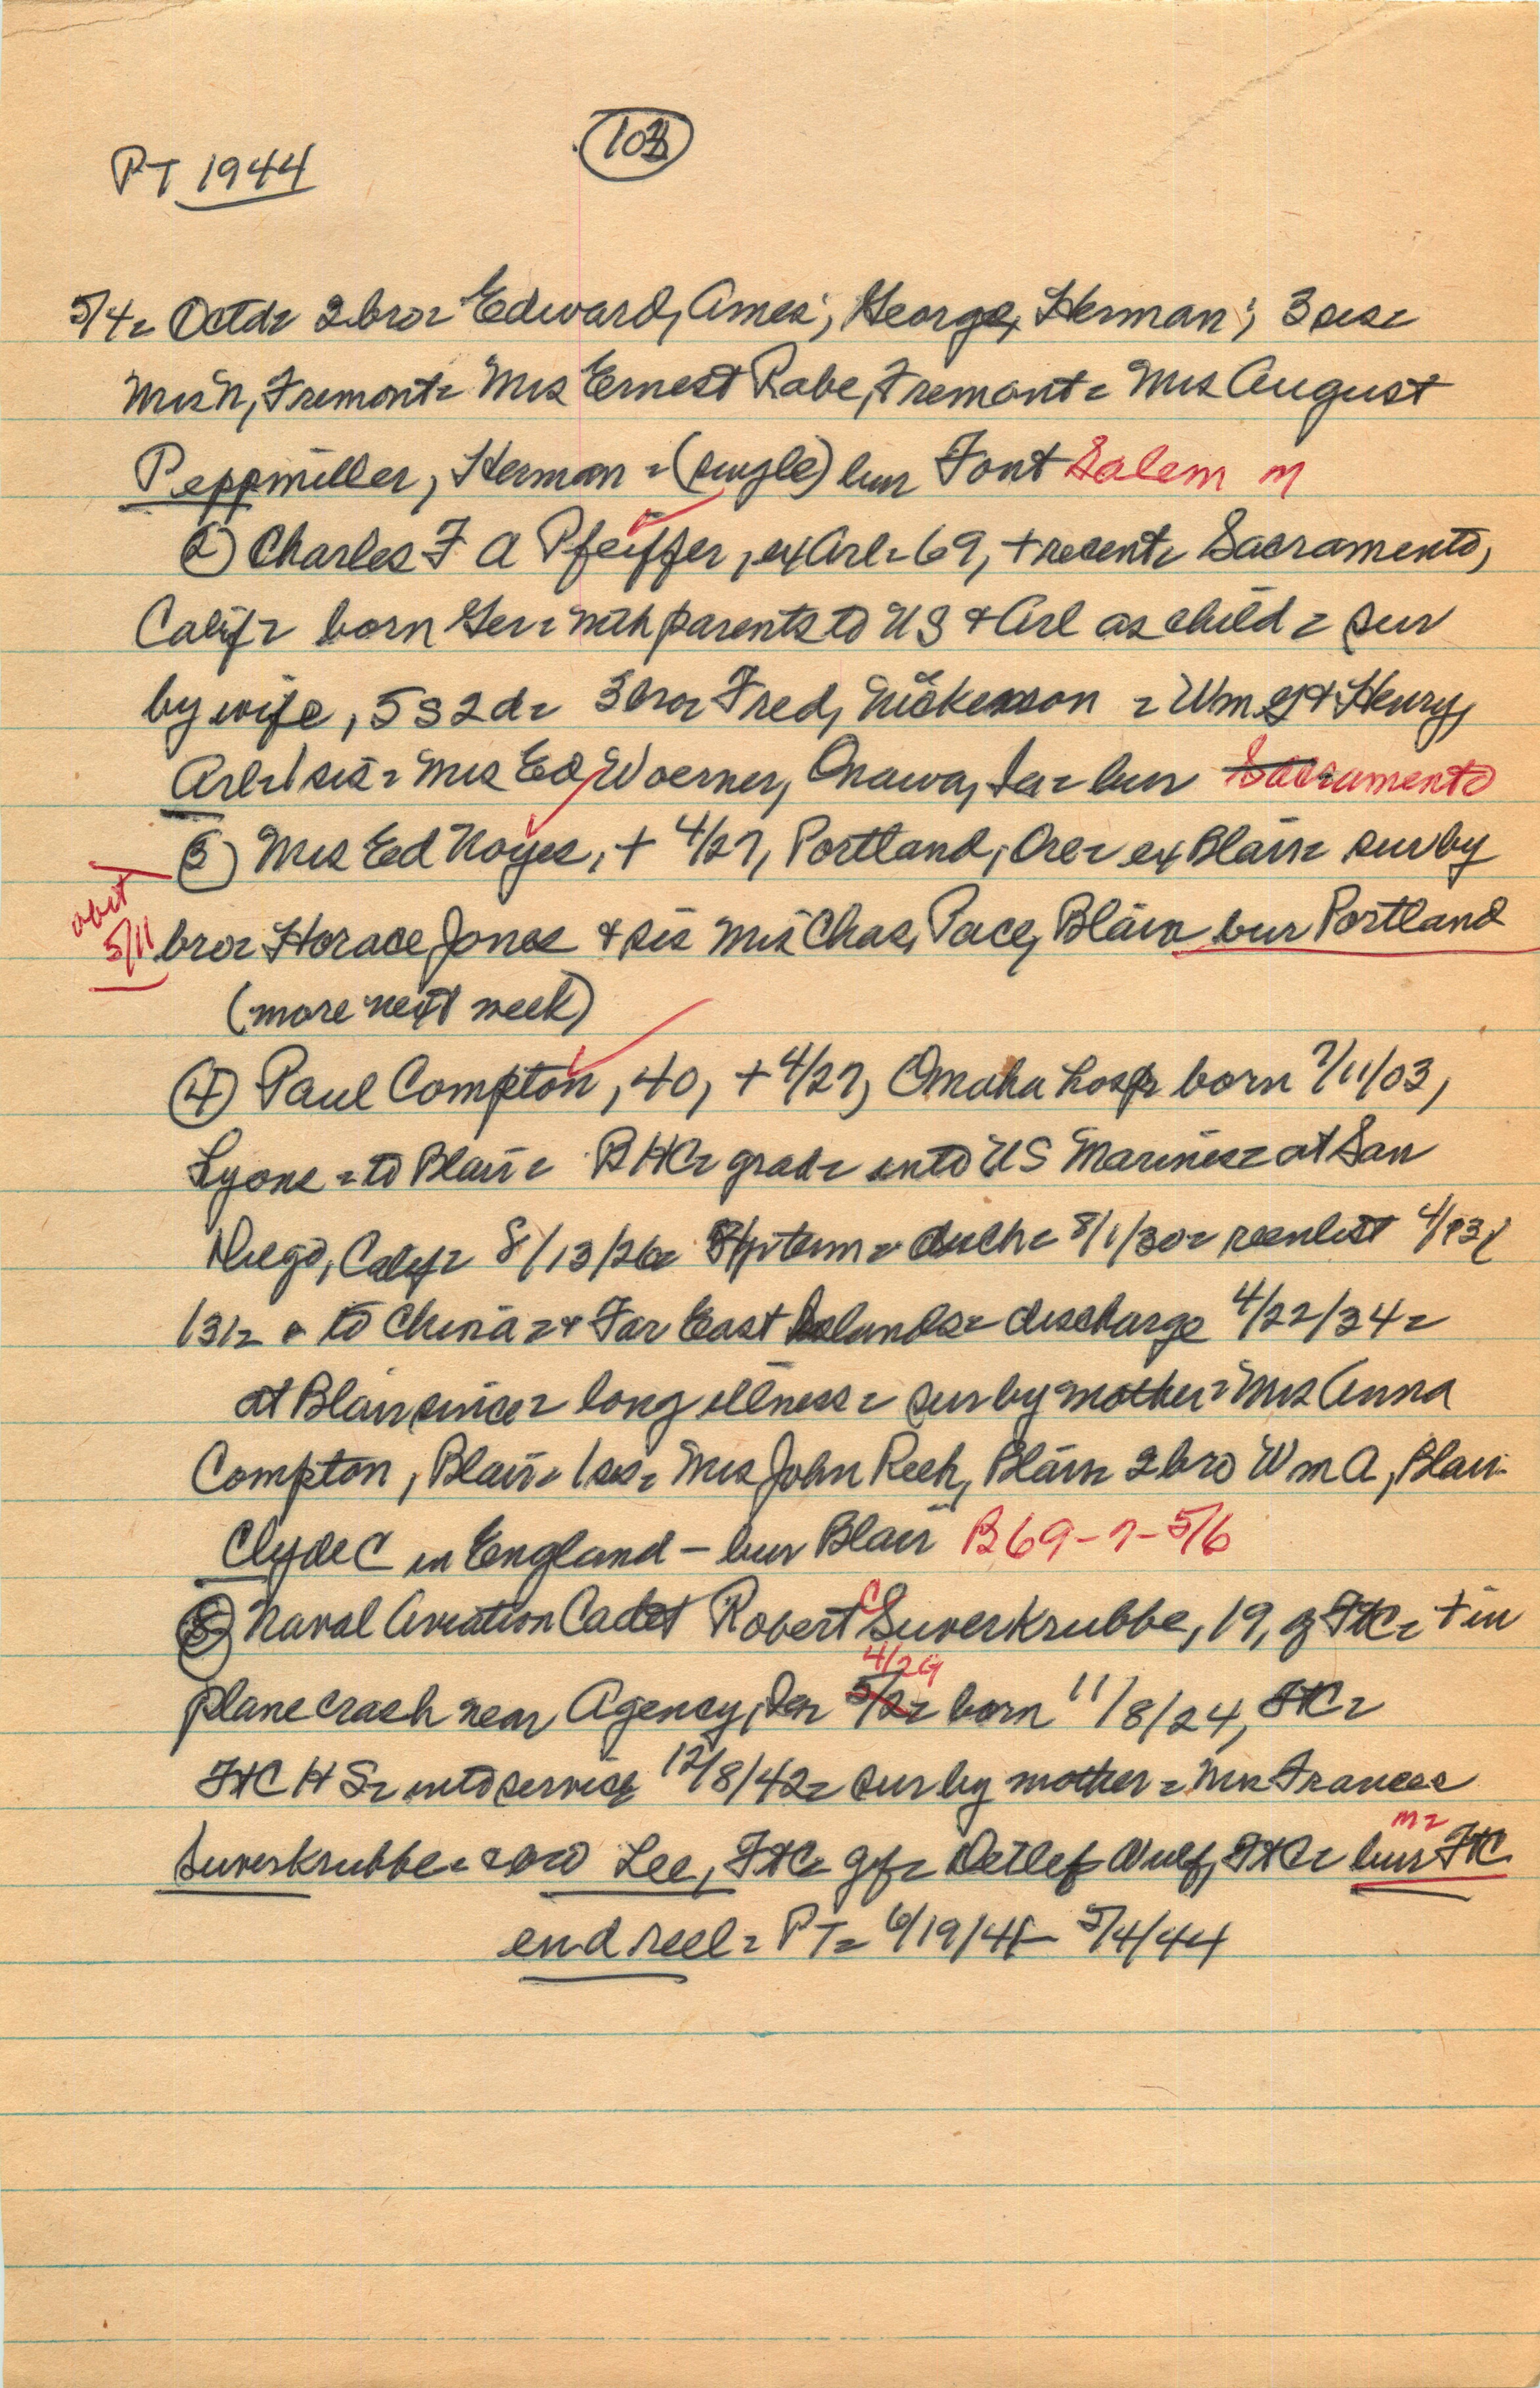 103
PT 1944
5/4= Octd= 2 bro= Edward, Ames; George, Herman; 3 sis=
Mrs N, Fremont= Mrs Ernest Rabe, Fremont= Mrs August
Peppmiller, Herman = (single) bur Font Salem m
2) Charles F A Pfeiffer, ex Arl= 69, + recent= Sacramento,
Calif= born Ger= with parents to US & Arl as child = sur
by wife, 5 s 2 d= 3 bro= Fred, Nickerson = Wm G & Henry,
Arl= 1 sis = Mrs Ed Woerner, Onawa, Ia= bur Sacramento
3) Mrs Ed Noyes, + 4/27, Portland, Ore= ex Blair= sur by
obit
5/11
bro= Horace Jones & sis Mrs Chas, Pace, Blair bur Portland
(more next week)
4) Paul Compton, 40, + 4/27, Omaha hosp born 7/11/03,
Lyons = to Blair= BHC= grad= into US Marines= at San
Diego, Calif= 8/13/26= term = disch= 8/1/30= reenlist
131= to China = & Far East Islands= discharge 4/22/34=
at Blair since= long illness = sur by mother = Mrs Anna
Compton, Blair= 1 sis= Mrs John Reeh, Blair= 2 bro Wm A, Blair
Clyde C in England - bur Blair B69-7-5/6
5) Naval Aviation Cadet Robert C Suverkrubbe, 19, of FtC= + in
4/29
plane crash near Agency, Ia= 5/2= born 11/8/24, FtC=
FtC HS= into service 12/8/42= sur by mother = Mrs Frances
m=
Suverkrubbe= bro Lee, FtC= gf= Detlef Wulf, FtC= bur FtC
end reel = PT= 6/19/41- 5/4/44